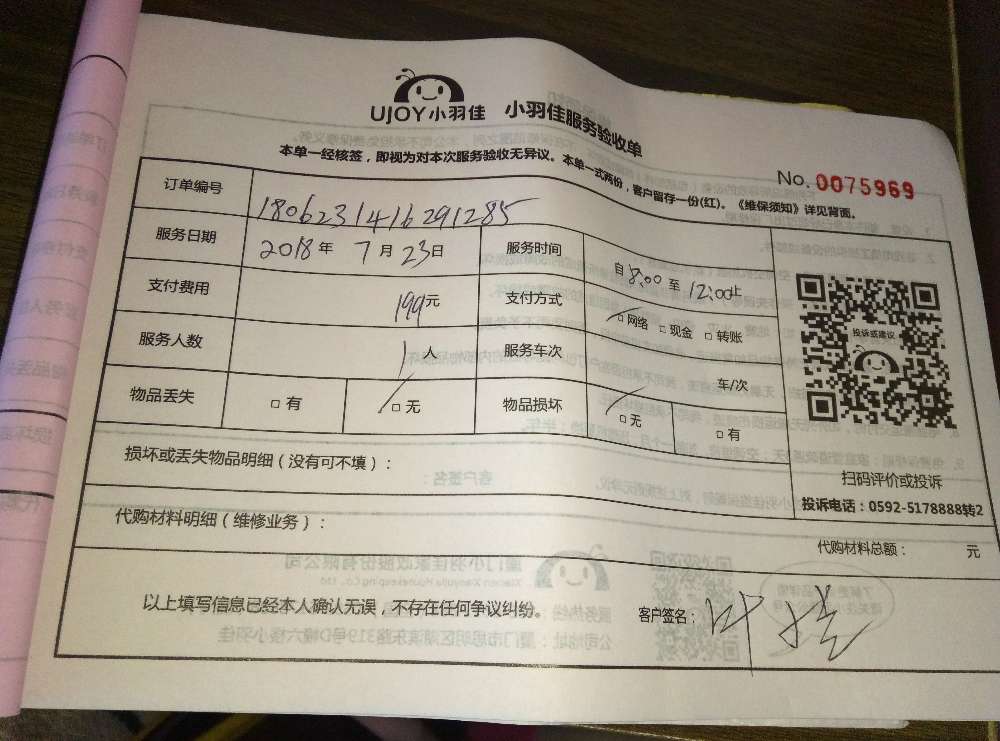 UJOY小羽佳 小羽佳服务验收单
本单一经核签，即视为对本次服务验收无异议。本单一式两份，客户留存一份(红)。《维保须知》详见背面。
No.0075969
订单编号 1806231416291285
服务日期 2018年 7月 23日 服务时间 自8:00至12:00止
支付费用 199元 支付方式 □网络 □现金 □转账
服务人数 1人 服务车次 车/次
物品丢失 □有 □无 物品损坏 □无 □有
投诉或建议
扫码评价或投诉
投诉电话：0592-5178888转2
损坏或丢失物品明细（没有可不填）：
代购材料明细（维修业务）：
代购材料总额： 元
以上填写信息已经本人确认无误，不存在任何争议纠纷。
客户签名：